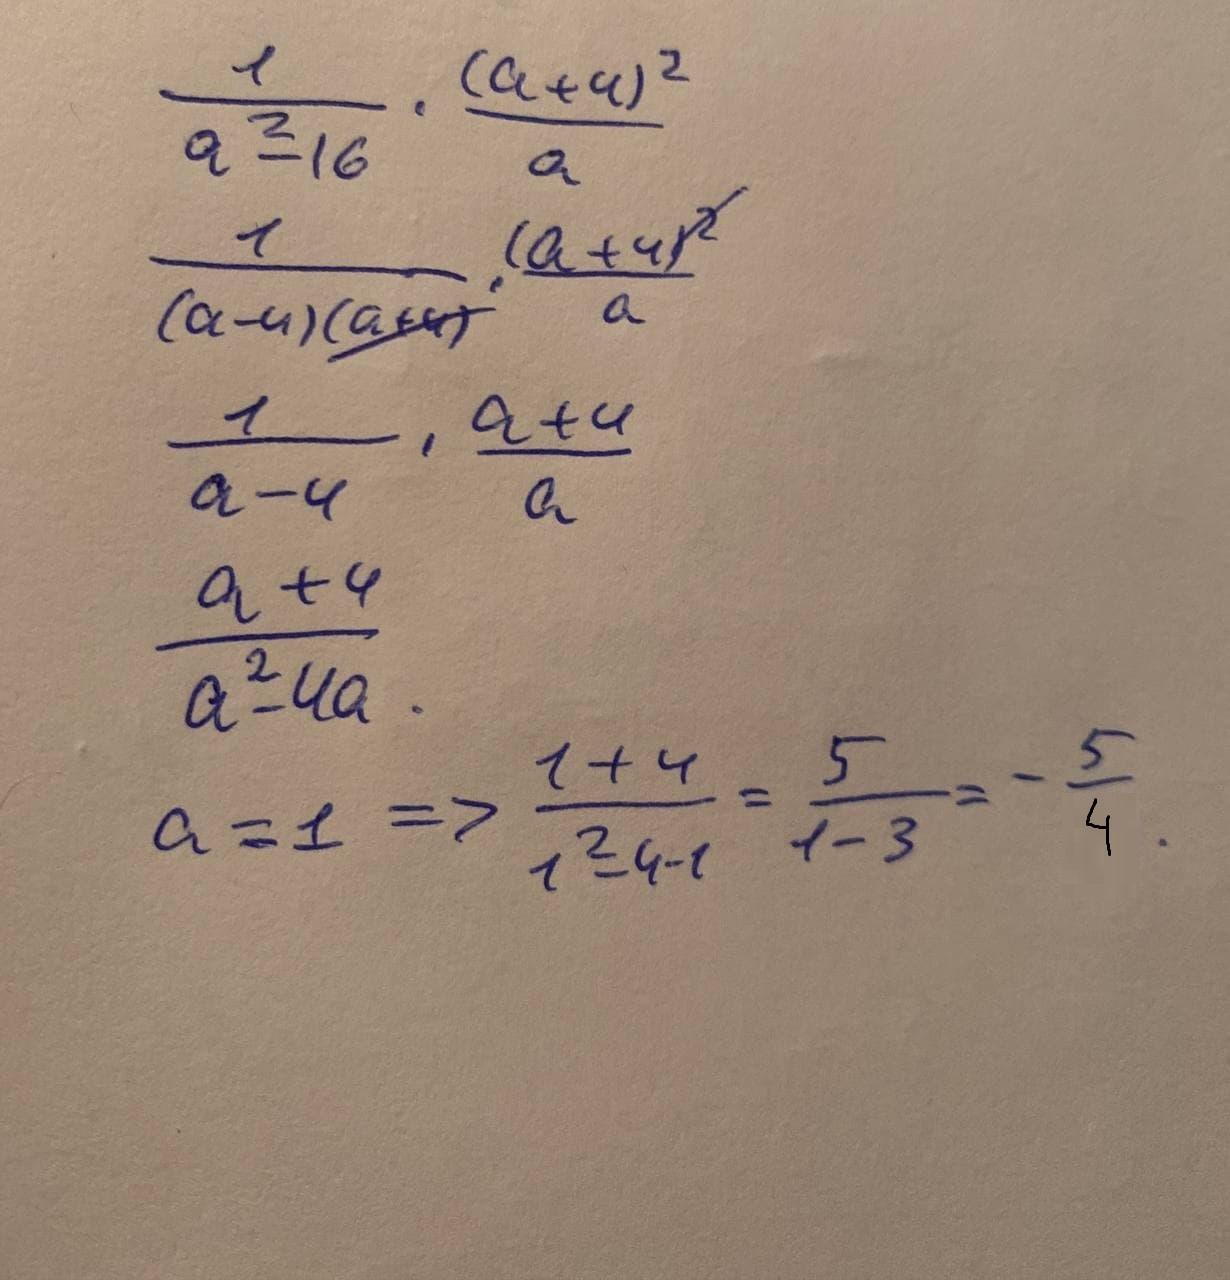 1/(a²-16) · (a+4)²/a
1/((a-4)(a+4)) · (a+4)²/a
1/(a-4) · (a+4)/a
(a+4)/(a²-4a).
a=1 => (1+4)/(1²-4·1) = 5/(1-3) = -5/4.